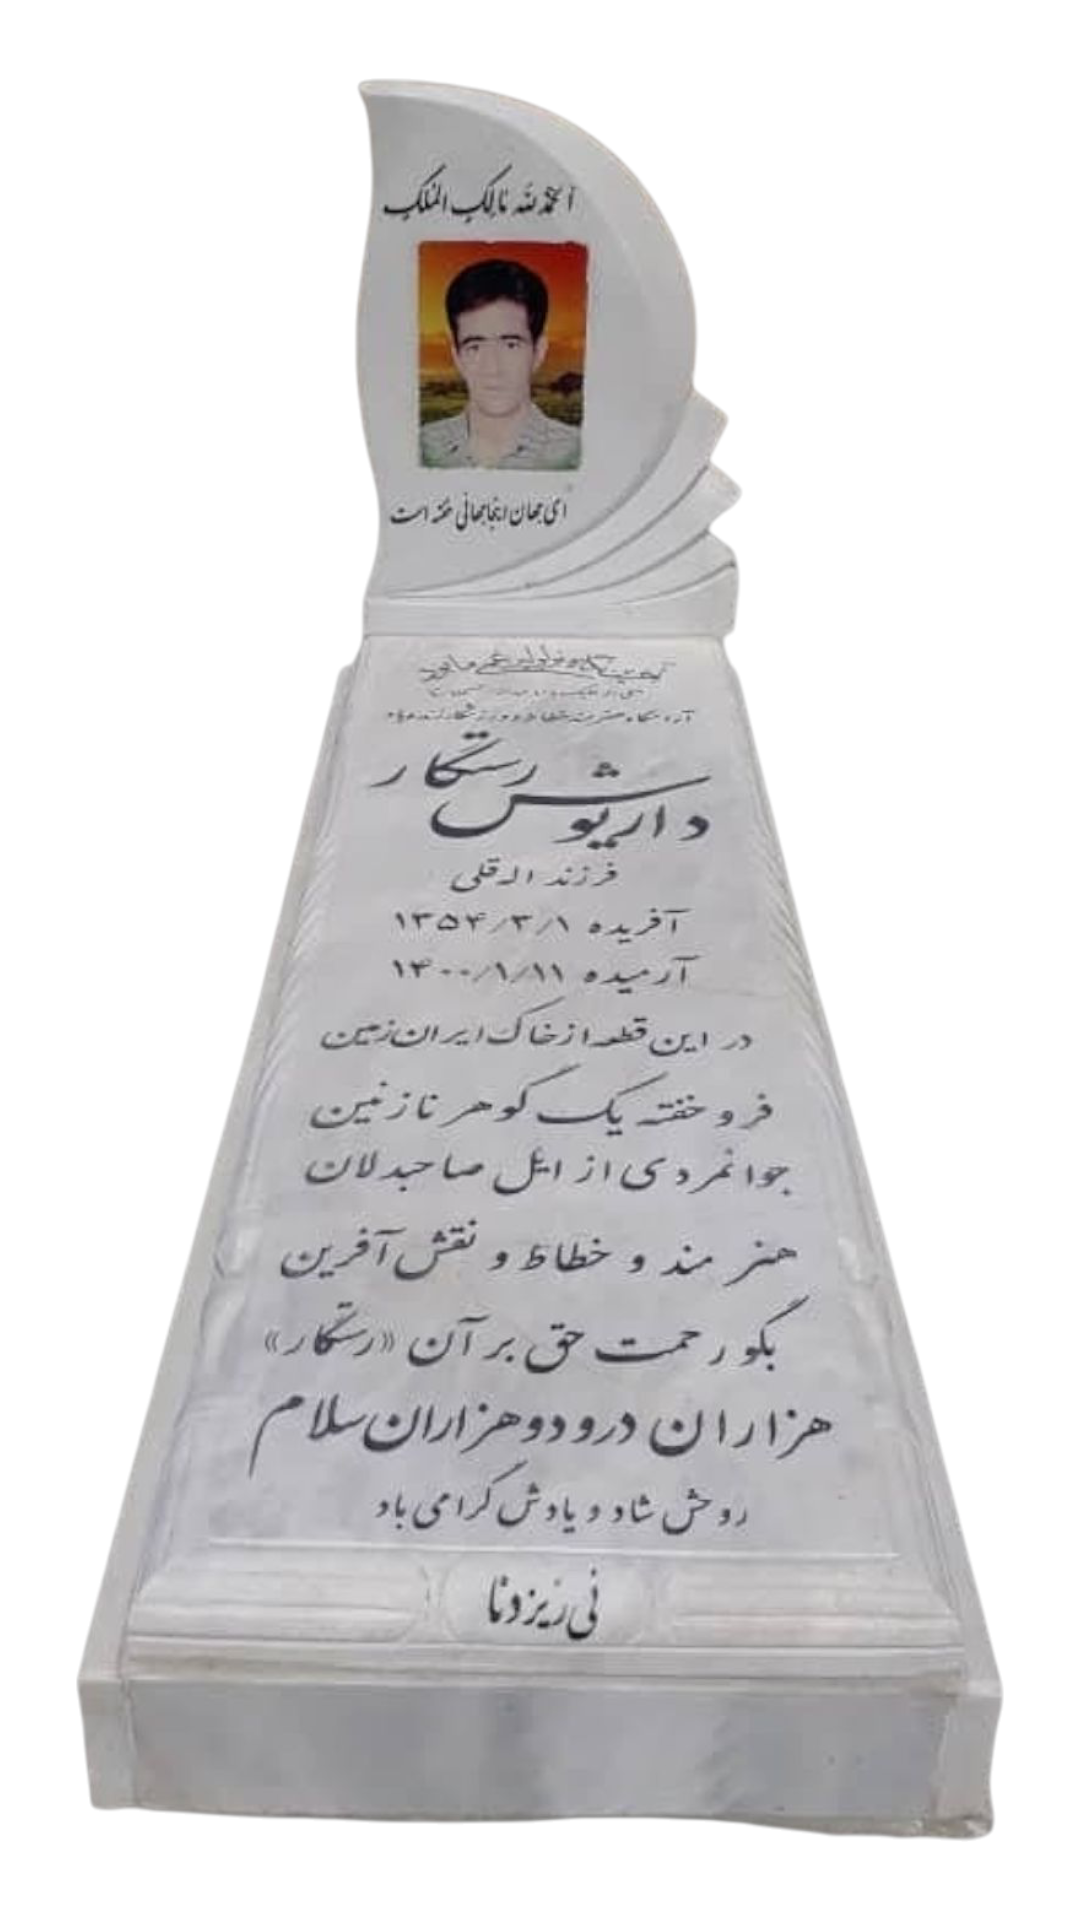 الحمدلله مالک الملک
ای جهان اینجا جهانی خفته است
آرامگاه هنرمند خطاط و ورزشکار
داریوش رستگار
فرزند اله قلی
آفریده ۱۳۵۴/۳/۱
آرمیده ۱۴۰۰/۱/۱۱
در این قطعه از خاک ایران زمین
فرو خفته یک گوهر نازنین
جوانمردی از ایل صاحبدلان
هنرمند و خطاط و نقش آفرین
بگو رحمت حق بر آن «رستگار»
هزاران درود و هزاران سلام
روحش شاد و یادش گرامی باد
نی ریز دنا